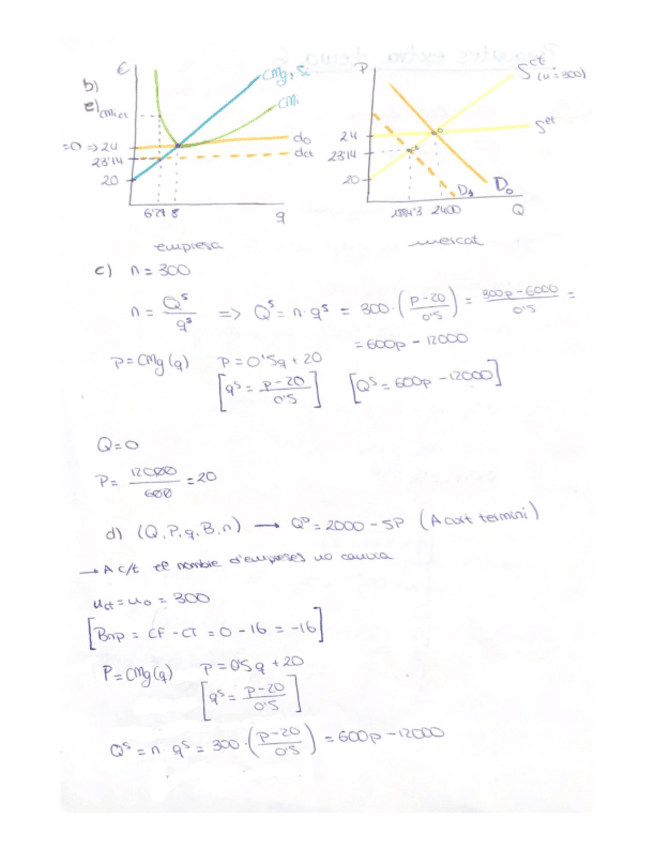 b)
e)
€
CMg, Si
CMi
CMi ct
=0 => 24
23'14
20
do
dct
6'29 8
q
empresa
P
S ct (u=300)
24
23'14
20
S et
D1
D0
2400
Q
mercat
c) n = 300
n = Q^S / q^S => Q^S = n · q^S = 300 · (p-20 / 0'5) = 300p - 6000 / 0'5 =
= 600p - 12000
p = CMg(q) p = 0'5q + 20
[q^S = p-20 / 0'5] [Q^S = 600p - 12000]
Q = 0
P = 12000 / 600 = 20
d) (Q, P, q, B, n) → Q^D = 2000 - 5P (A curt termini)
→ A c/t el nombre d'empreses no canvia
nct = no = 300
[Bnp = CF - CT = 0 - 16 = -16]
P = CMg(q) p = 0'5q + 20
[q^S = p-20 / 0'5]
Q^S = n · q^S = 300 · (p-20 / 0'5) = 600p - 12000